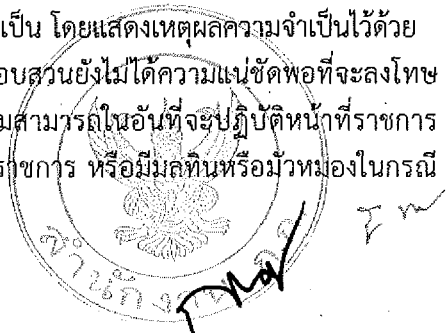 เป็น โดยแสดงเหตุผลความจำเป็นไว้ด้วย
อบสวนยังไม่ได้ความแน่ชัดพอที่จะลงโทษ
มสามารถในอันที่จะปฏิบัติหน้าที่ราชการ
ราชการ หรือมีมลทินหรือมัวหมองในกรณี
สำนักงาน